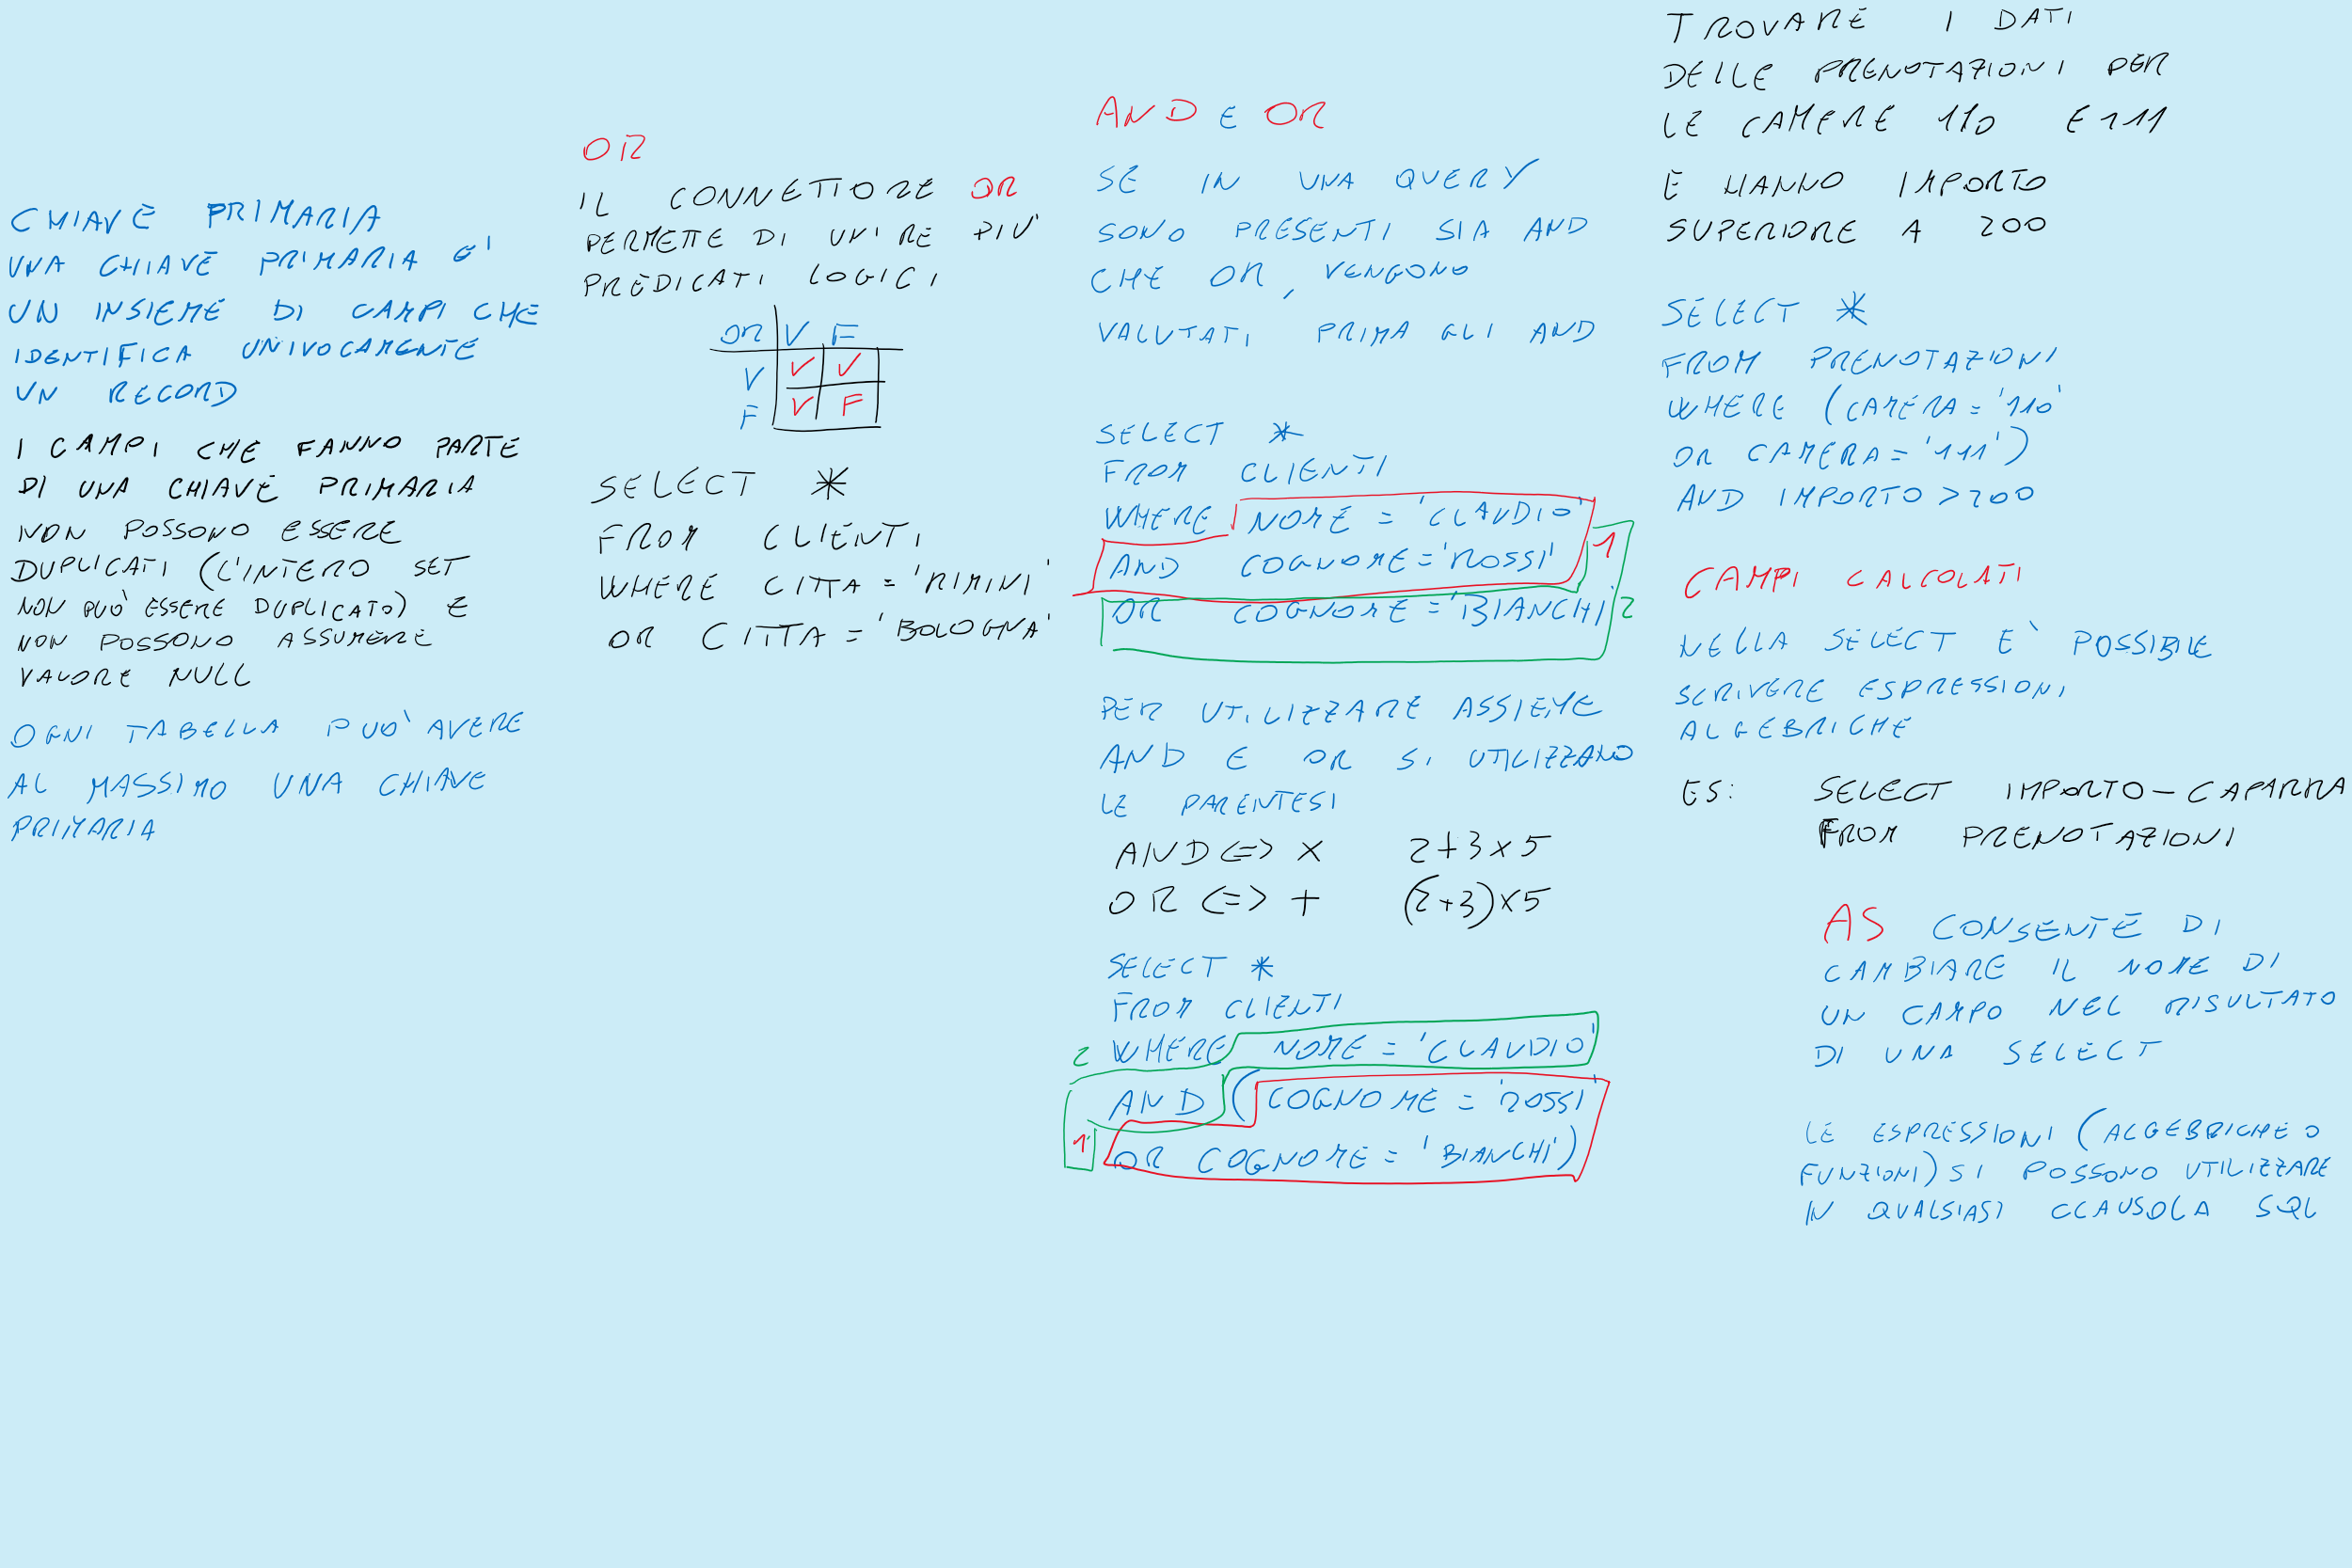 CHIAVE PRIMARIA
UNA CHIAVE PRIMARIA E'
UN INSIEME DI CAMPI CHE
IDENTIFICA UNIVOCAMENTE
UN RECORD
I CAMPI CHE FANNO PARTE
DI UNA CHIAVE PRIMARIA
NON POSSONO ESSERE
DUPLICATI (L'INTERO SET
NON PUÒ ESSERE DUPLICATO) E
NON POSSONO ASSUMERE
VALORE NULL
OGNI TABELLA PUO' AVERE
AL MASSIMO UNA CHIAVE
PRIMARIA
OR
IL CONNETTORE OR
PERMETTE DI UNIRE PIU'
PREDICATI LOGICI
OR V F
V V V
F V F
SELECT *
FROM CLIENTI
WHERE CITTA = 'RIMINI'
OR CITTA = 'BOLOGNA'
AND E OR
SE IN UNA QUERY
SONO PRESENTI SIA AND
CHE OR, VENGONO
VALUTATI PRIMA GLI AND
SELECT *
FROM CLIENTI
WHERE NOME = 'CLAUDIO'
AND COGNOME = 'ROSSI' 1
OR COGNOME = 'BIANCHI' 2
PER UTILIZZARE ASSIEME
AND E OR SI UTILIZZANO
LE PARENTESI
AND <=> x 2+3x5
OR <=> + (2+3)x5
SELECT *
FROM CLIENTI
2 WHERE NOME = 'CLAUDIO'
AND (COGNOME = 'ROSSI'
1 OR COGNOME = 'BIANCHI')
TROVARE I DATI
DELLE PRENOTAZIONI PER
LE CAMERE 110 E 111
E HANNO IMPORTO
SUPERIORE A 200
SELECT *
FROM PRENOTAZIONI
WHERE (CAMERA = '110'
OR CAMERA = '111')
AND IMPORTO > 200
CAMPI CALCOLATI
NELLA SELECT E' POSSIBILE
SCRIVERE ESPRESSIONI
ALGEBRICHE
ES: SELECT IMPORTO - CAPARRA
FROM PRENOTAZIONI
AS CONSENTE DI
CAMBIARE IL NOME DI
UN CAMPO NEL RISULTATO
DI UNA SELECT
LE ESPRESSIONI (ALGEBRICHE O
FUNZIONI) SI POSSONO UTILIZZARE
IN QUALSIASI CLAUSOLA SQL